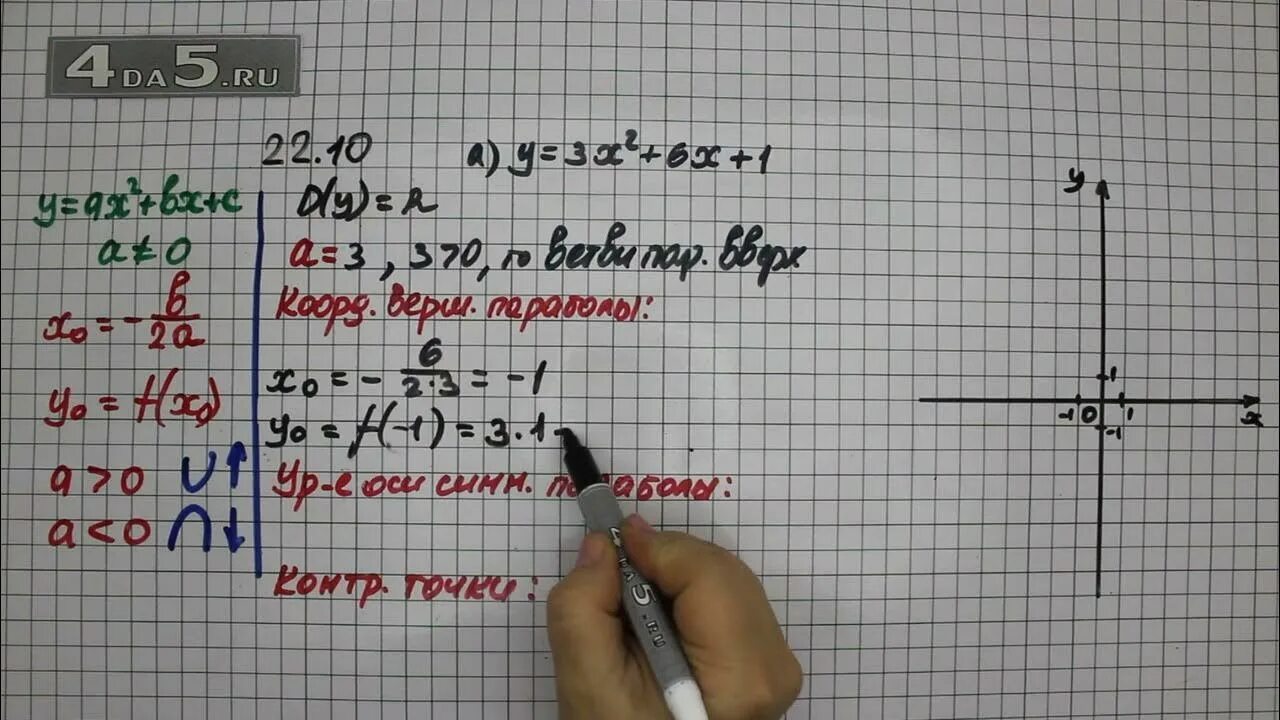 4DA5.RU
22.10 а) y=3x²+6x+1
y=ax²+bx+c
a≠0
x₀=-b/2a
y₀=f(x₀)
a>0
a<0
D(y)=R
a=3, 3>0, то ветви пар. вверх
Коорд. верш. параболы:
x₀=-6/2·3=-1
y₀=f(-1)=3·1-
Ур-е оси симм. параболы:
Контр. точки:
y
1
-1 0 1
-1
x
4DA5.RU